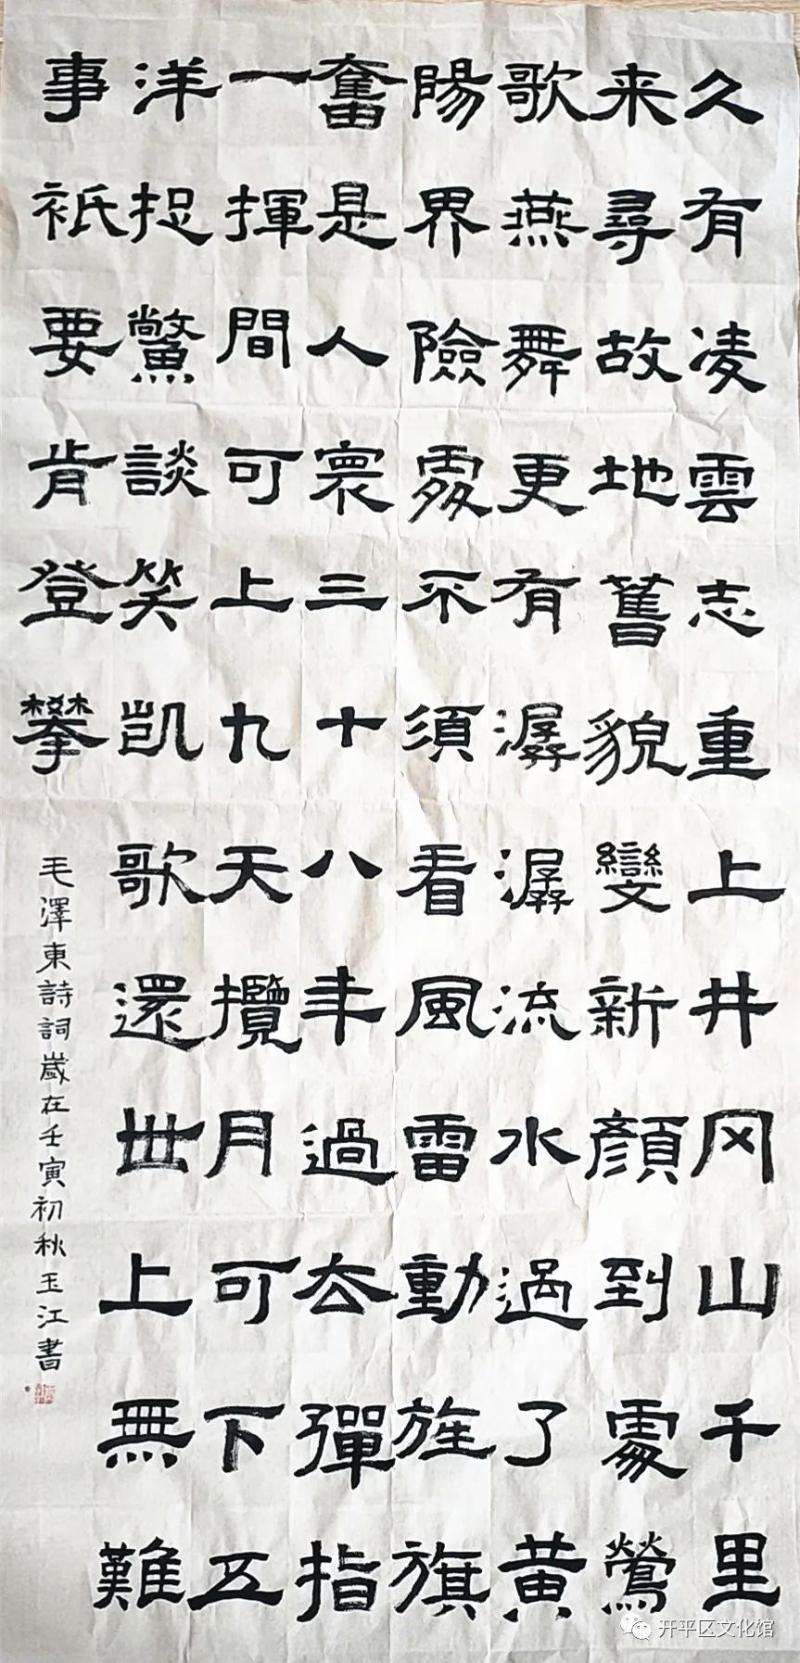 久有凌雲志重上井冈山千里
来尋故地舊貌變新顔到處鶯
歌燕舞更有潺潺流水過了黄
陽界險處不須看風雷動旌旗
奮是人寰三十八年過去彈指
一揮間可上九天攬月可下五
洋捉鱉談笑凱歌還世上無難
事衹要肯登攀
毛澤東詩詞歲在壬寅初秋玉江書
开平区文化馆